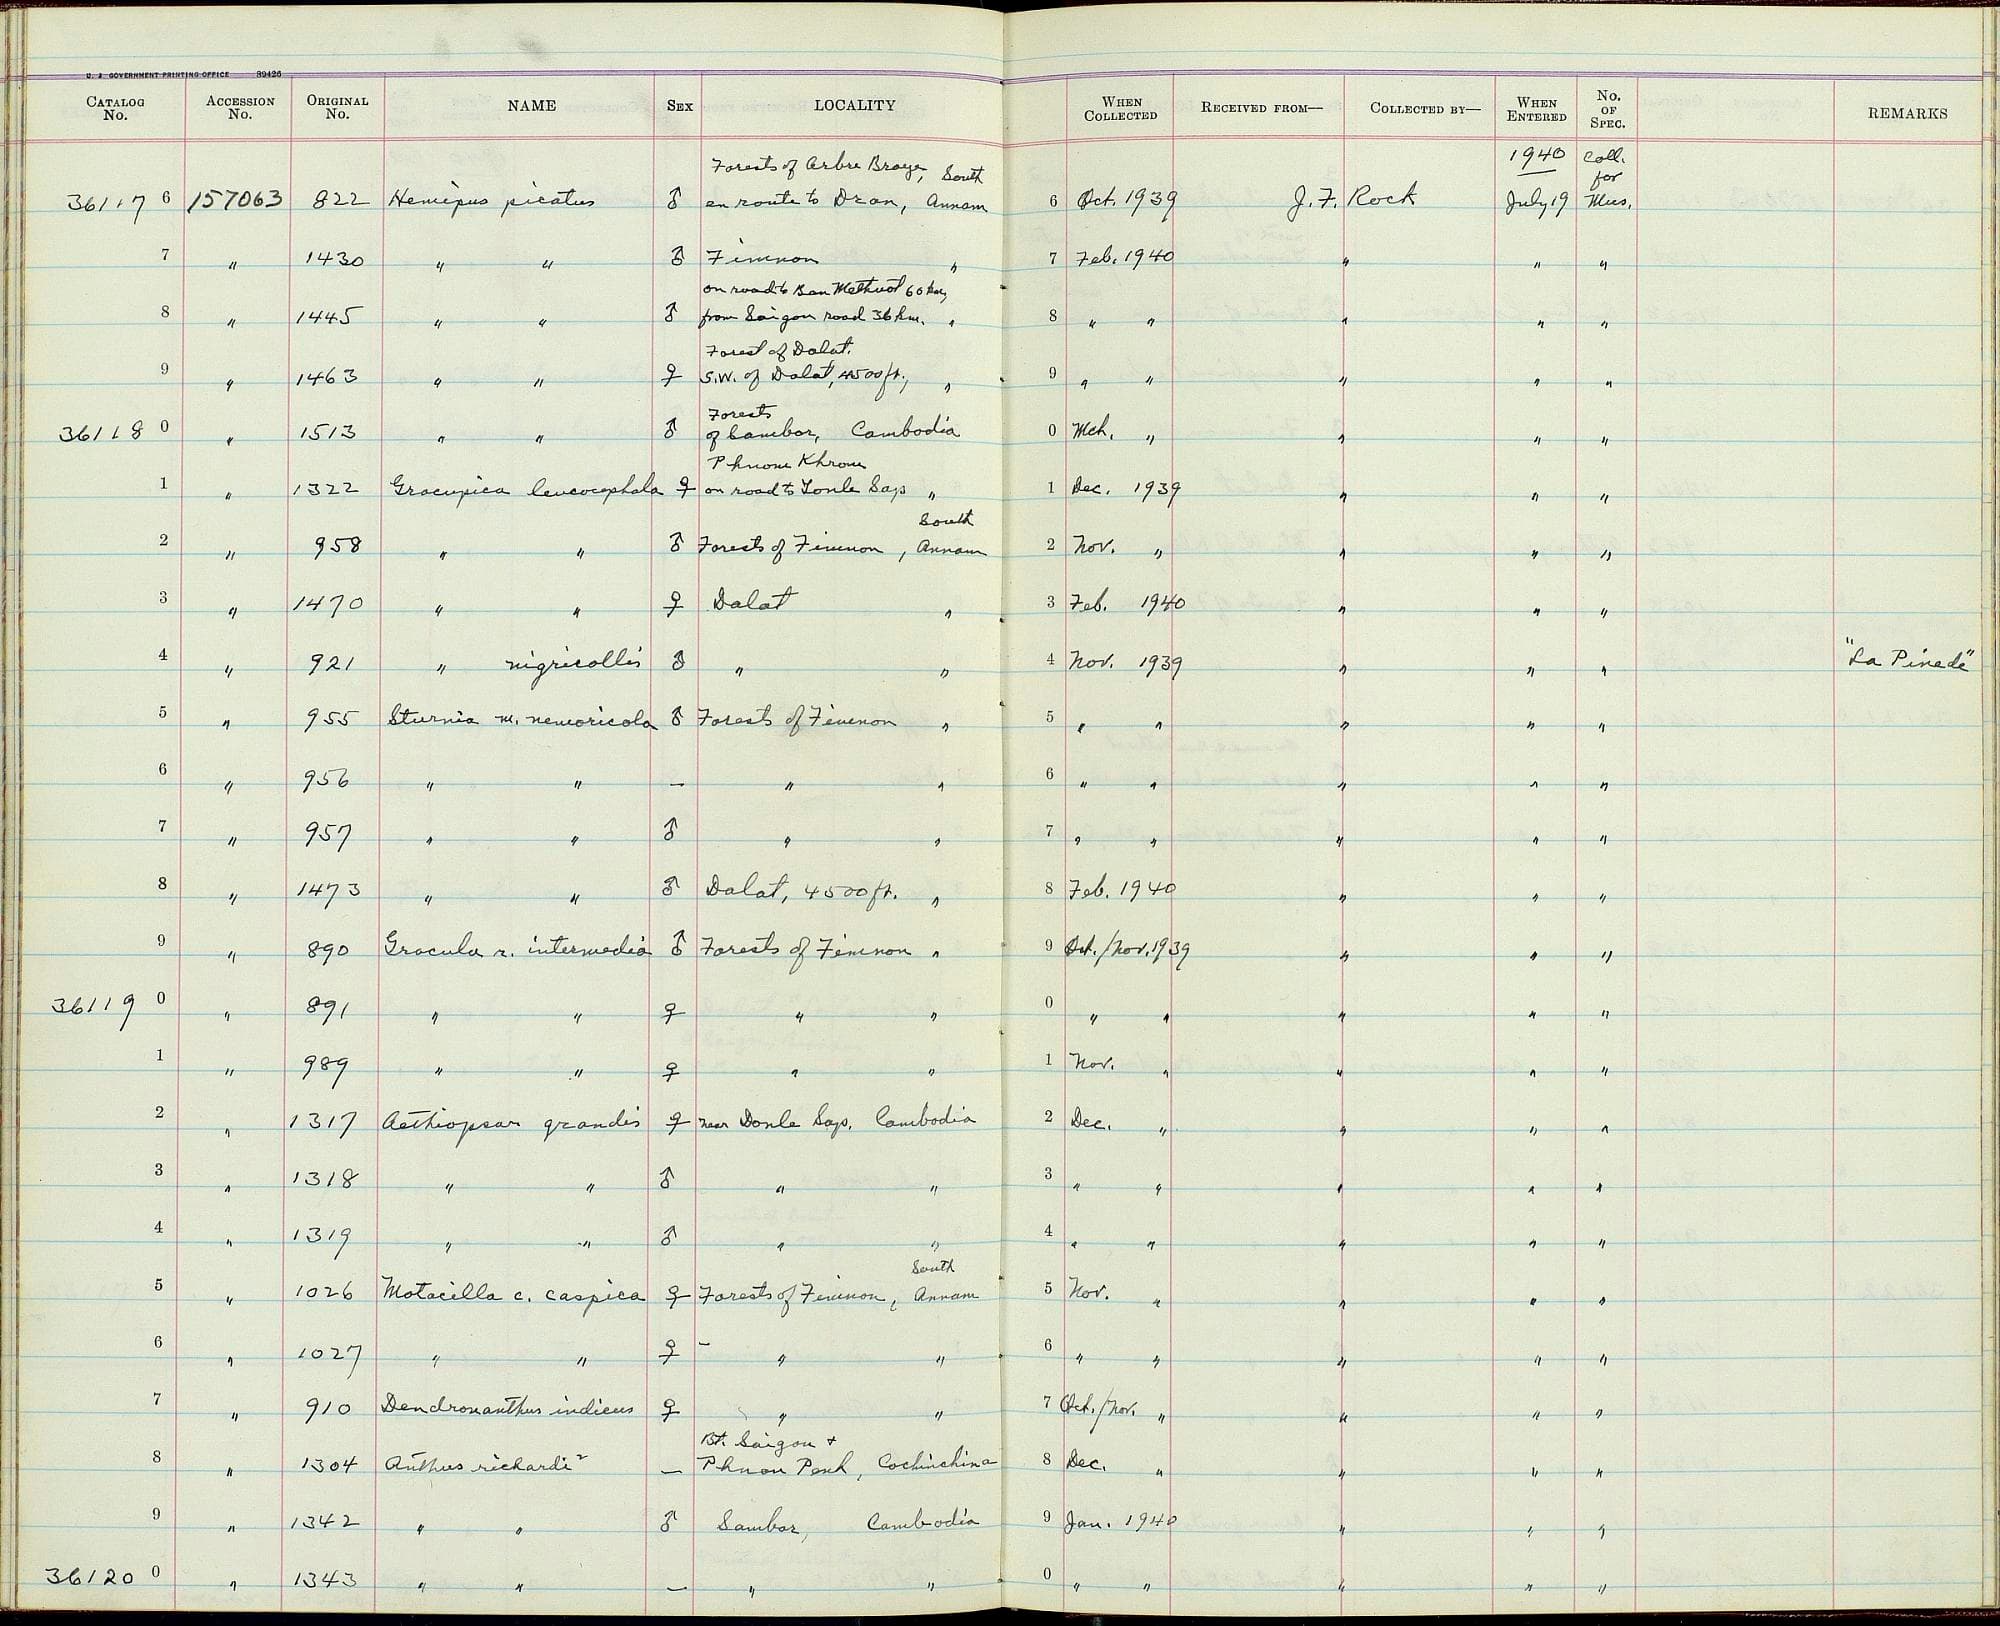 U. S. GOVERNMENT PRINTING OFFICE 39426
CATALOG No. ACCESSION No. ORIGINAL No. NAME SEX LOCALITY WHEN COLLECTED RECEIVED FROM— COLLECTED BY— WHEN ENTERED No. OF SPEC. REMARKS
Forests of Arbre Broye, South 1940 Coll. for
36117 6 157063 822 Hemipus picatus ♂ en route to Dran, Annam 6 Oct. 1939 J. F. Rock July 19 Mus.
7 " 1430 " " ♂ Fimnon " 7 Feb. 1940 " " "
on road to Ban Methuot 60 km,
8 " 1445 " " ♂ from Saigon road 36 km. " 8 " " " " "
Forest of Dalat.
9 " 1463 " " ♀ S.W. of Dalat, 4500 ft., " 9 " " " " "
Forests
36118 0 " 1513 " " ♂ of Sambor, Cambodia 0 Mch. " " " "
Phnom Khrom
1 " 1322 Gracupica leucocephala ♀ on road to Tonle Sap " 1 Dec. 1939 " " "
South
2 " 958 " " ♂ Forests of Fimnon, Annam 2 Nov. " " " "
3 " 1470 " " ♀ Dalat " 3 Feb. 1940 " " "
4 " 921 " nigricollis ♂ " " 4 Nov. 1939 " " " "La Pinede"
5 " 955 Sturnia m. nemoricola ♂ Forests of Fimnon " 5 " " " " "
6 " 956 " " — " " 6 " " " " "
7 " 957 " " ♂ " " 7 " " " " "
8 " 1473 " " ♂ Dalat, 4500 ft. " 8 Feb. 1940 " " "
9 " 890 Gracula r. intermedia ♂ Forests of Fimnon " 9 Oct./Nov. 1939 " " "
36119 0 " 891 " " ♀ " " 0 " " " " "
1 " 989 " " ♀ " " 1 Nov. " " " "
2 " 1317 Aethiopsar grandis ♀ near Donle Sap, Cambodia 2 Dec. " " " "
3 " 1318 " " ♂ " " 3 " " " " "
4 " 1319 " " ♂ " " 4 " " " " "
South
5 " 1026 Motacilla c. caspica ♀ Forests of Fimnon, Annam 5 Nov. " " " "
6 " 1027 " " ♀ – " " 6 " " " " "
7 " 910 Dendronanthus indicus ♀ " " 7 Oct./Nov. " " " "
Bt. Saigon +
8 " 1304 Anthus richardi — Phnom Penh, Cochinchina 8 Dec. " " " "
9 " 1342 " " ♂ Sambor, Cambodia 9 Jan. 1940 " " "
36120 0 " 1343 " " — " " 0 " " " " "